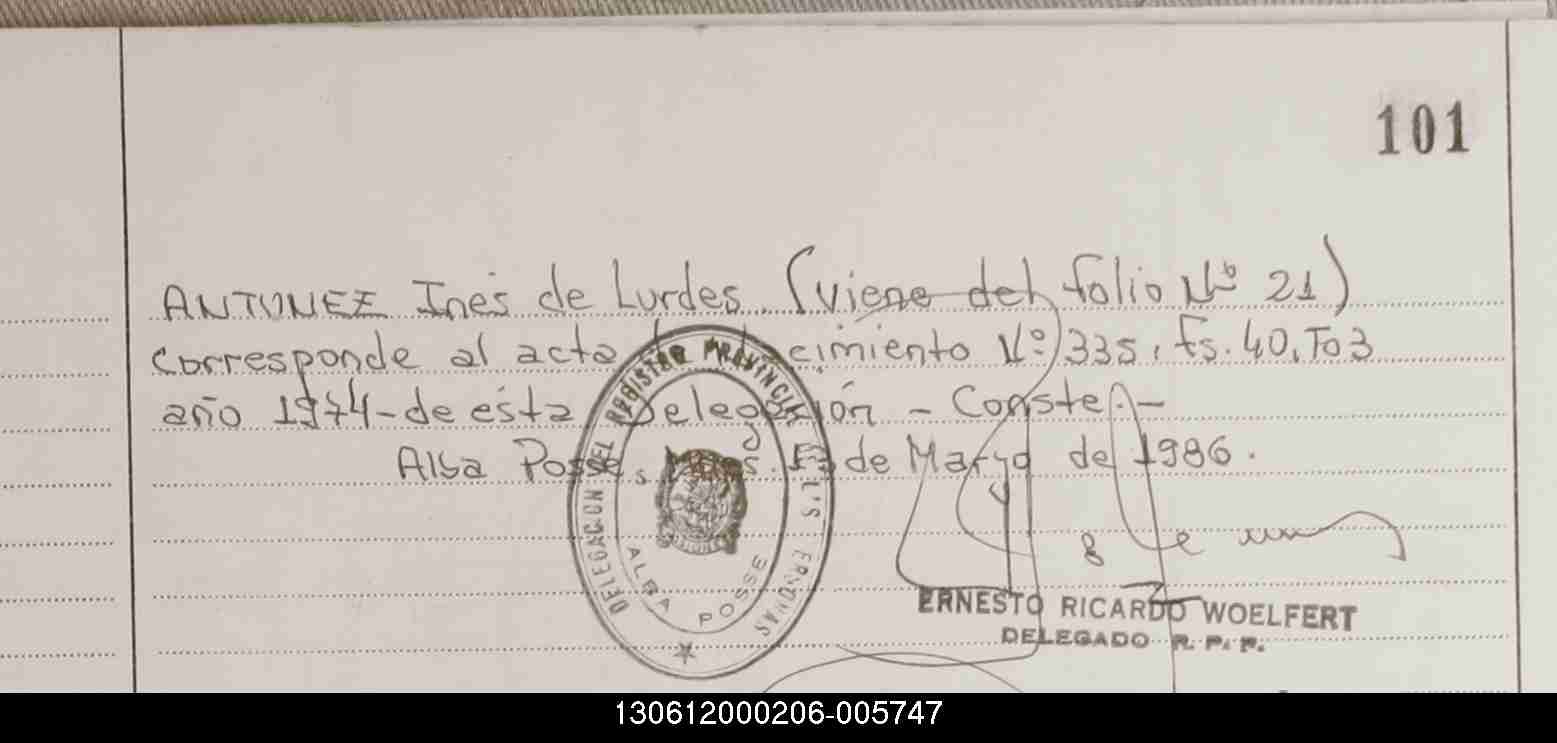 101
ANTUNEZ Inés de Lurdes. (viene del folio Nº 21)
Corresponde al acta de nacimiento Nº 335, Fs. 40, To 3
año 1974 - de esta Delegación - Conste.-
Alba Posse, Mnes. de Marzo de 1986.
DELEGACION DEL REGISTRO PROVINCIAL
ALBA POSSE
ERNESTO RICARDO WOELFERT
DELEGADO R. P. P.
130612000206-005747